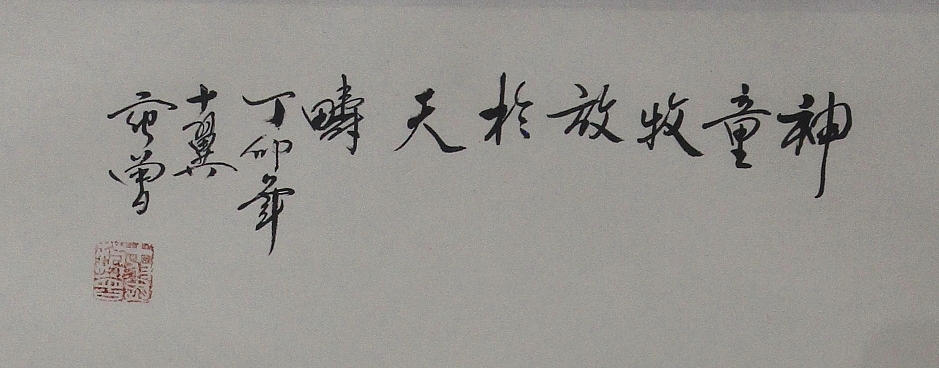 神童牧放於天疇
丁卯年
十翼
范曾